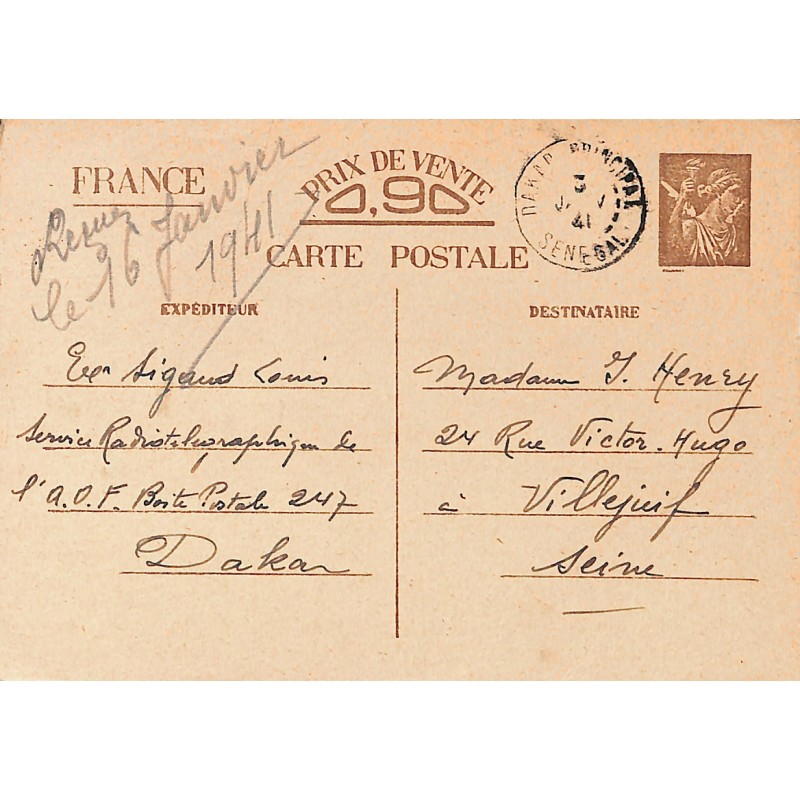 FRANCE
PRIX DE VENTE
0,90
CARTE POSTALE
DAKAR PRINCIPAL
3
41
SENEGAL
le 16 Janvier
1941
EXPÉDITEUR
Sigaud Louis
Service Radiotelegraphique de
l'A.O.F. Boite Postale 247
Dakar
DESTINATAIRE
Madame J. Henry
24 Rue Victor-Hugo
à Villejuif
Seine